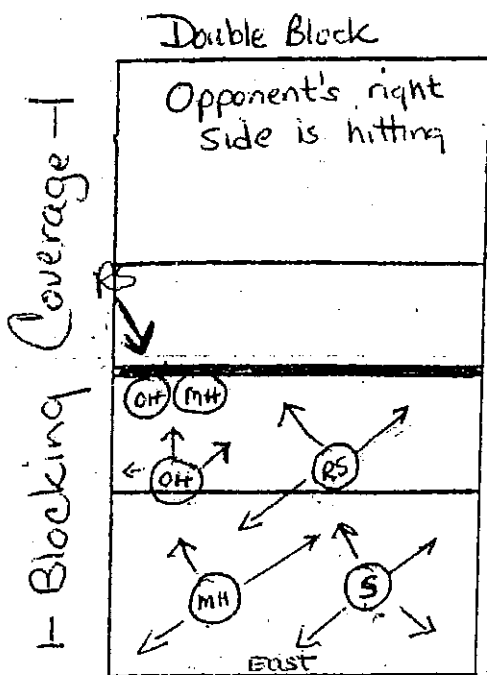 Double Block
Opponent's right
side is hitting
Blocking Coverage
RS
OH MH
OH
RS
MH
S
East